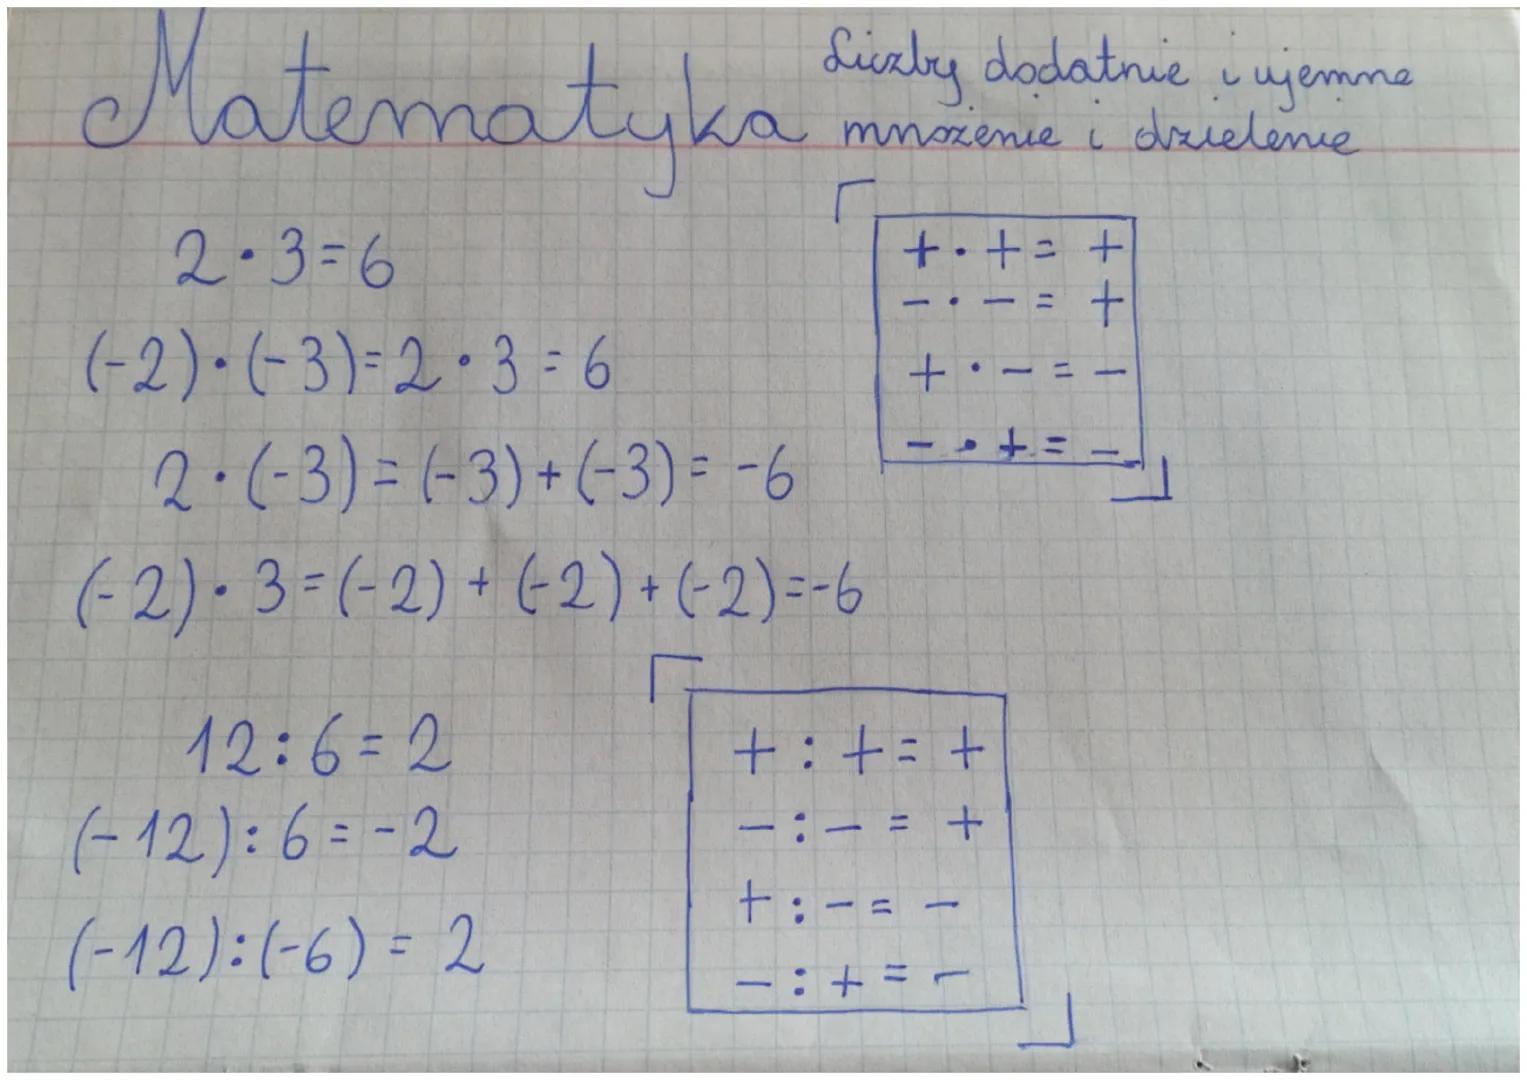 Matematyka
Liczby dodatnie i ujemne
mnożenie i dzielenie
2 · 3 = 6
(-2) · (-3) = 2 · 3 = 6
2 · (-3) = (-3) + (-3) = -6
(-2) · 3 = (-2) + (-2) + (-2) = -6
+ · + = +
- · - = +
+ · - = -
- · + = -
12 : 6 = 2
(-12) : 6 = -2
(-12) : (-6) = 2
+ : + = +
- : - = +
+ : - = -
- : + = -